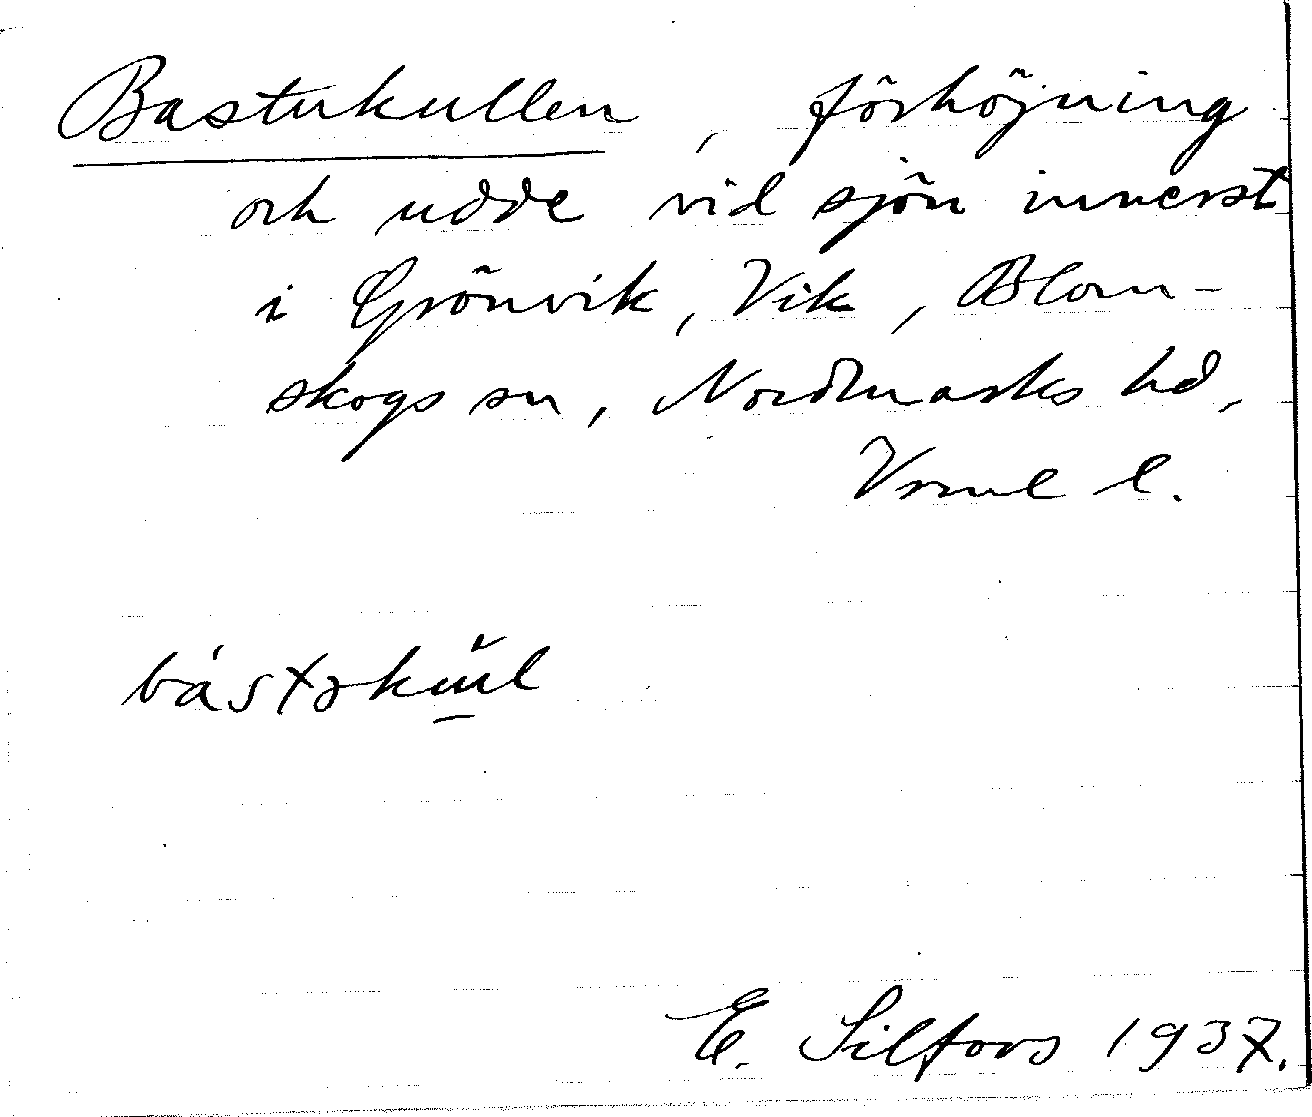 Bastukullen, förhöjning
och udde vid sjön innerst
i Grönvik, Vik, Blom-
skogs sn, Nordmarks hd,
Vrml l.
bástəkŭl
E. Silfors 1937.